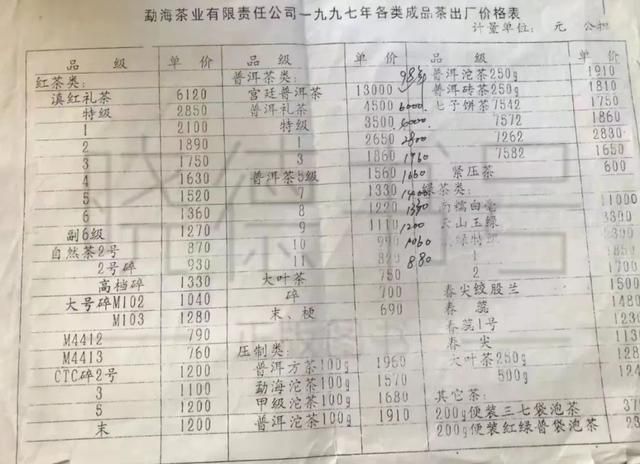 勐海茶业有限责任公司一九九七年各类成品茶出厂价格表
计量单位: 元 公担
品 级 单 价
红茶类:
滇红礼茶 6120
特级 2850
1 2100
2 1890
3 1750
4 1630
5 1520
6 1360
副6级 1270
自然茶2号 870
2号碎 930
高档碎 1330
大号碎M102 1040
M103 1280
M4412 790
M4413 760
CTC碎2号 1200
3 1100
5 1200
末 1200
品 级 单 价
普洱茶类:
宫廷普洱茶 13000
普洱礼茶 4500 6000
特级 3500
1 2650 2800
3 1860 1960
普洱茶5级 1560 1660
7 1330 1400
8 1220
9 1110 1200
10 990 1060
11 820 880
大叶茶 750
碎 700
末、梗 690
压制类:
普洱方茶100g 1960
勐海沱茶100g 1570
甲级沱茶100g 1680
普洱沱茶100g 1910
品 级 单 价
普洱沱茶250g 1910
普洱砖茶250g 1810
七子饼茶7542 1750
7572 1860
7262 2830
7582 1650
紧压茶 600
绿茶类:
南糯白毫 11000
云山玉绿
特级
1
2
春尖绞股兰
春蕊
春蕊1号
春 尖
大叶茶250g
500g
其它茶:
200g便装三七袋泡茶
200g便装红绿普袋泡茶